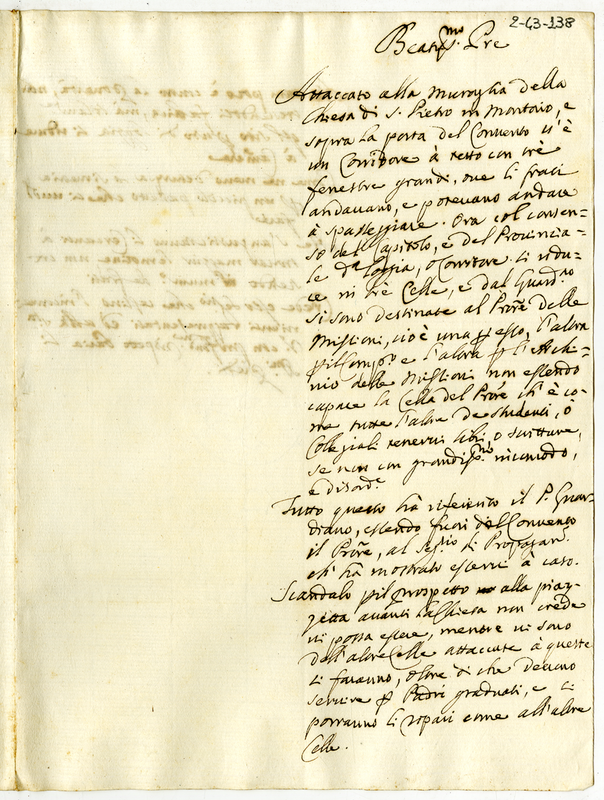 2-43-138
Beatis.mo Pre
Attaccato alla muraglia della
Chiesa di S. Pietro in Montorio, e
sopra la porta del Convento vi è
un Corridore à tetto con trè
fenestre grandi, ove li frati
andavano, e potevano andare
à passeggiare. Ora col consen=
so del Capitolo, e del Provincia=
le d.a loggia, o Corritore si ridu=
ce in trè Celle, e dal Guard.no
si sono destinate al Prõre delle
Missioni, cioè una p esso, l'altra
p il Comp.o e l'altra p l'Archi=
vio delle Missioni non essendo
capace la Cella del Prõre ch'è co=
me tutte l'altre de studenti, ò
Collegiali tenervi libri, o scritture,
se non con grandis.mo incomodo,
e disord.e
Tutto questo hà riferito il P. Guar=
diano, essendo fuori del Convento
il Prõre, al Seg.rio di Propagan.
ch'hà mostrato esservi à caso.
Scandalo p il prospetto alla piaz=
zetta avanti la Chiesa non crede
vi possa essere, mentre vi sono
dell'altre Celle attaccate à queste
si faranno, oltre di che devono
servire p Padri graduati, e si
porranno li ripari come all'altre
Celle.